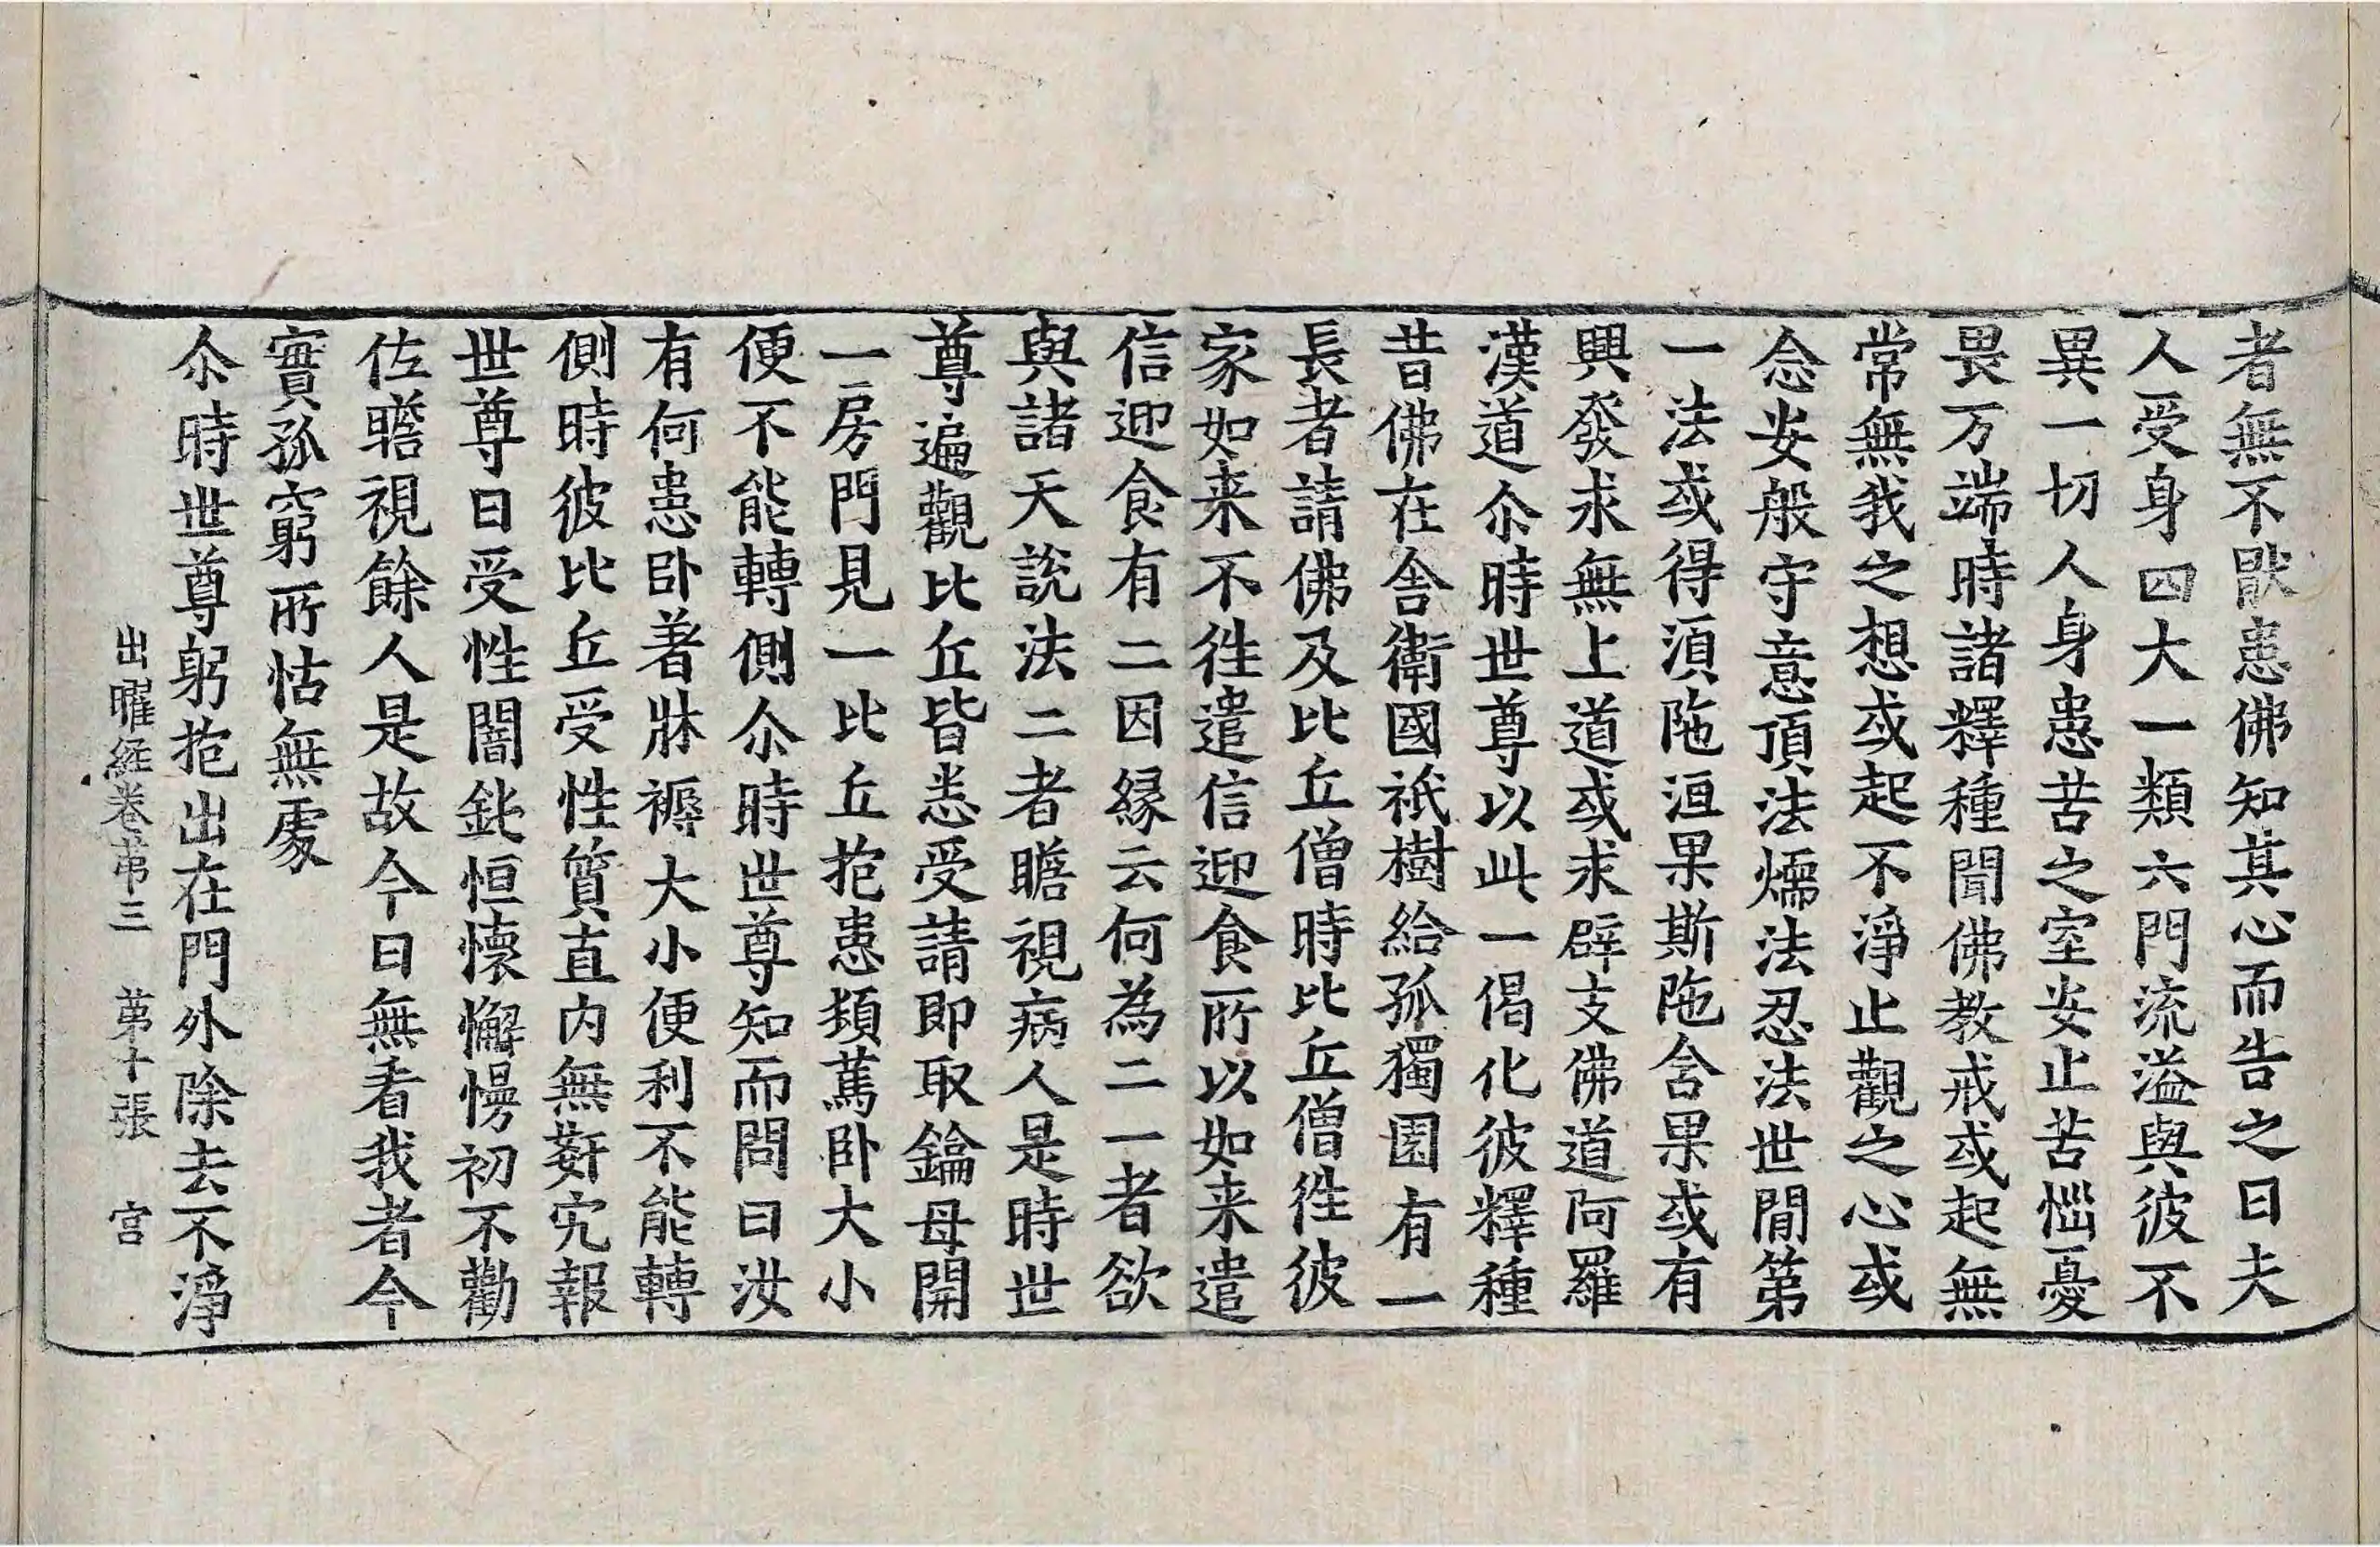 者無不猒患佛知其心而告之曰夫
人受身四大一類六門流溢與彼不
異一切人身患苦之室安止苦惱憂
畏万端時諸釋種聞佛教戒或起無
常無我之想或起不淨止觀之心或
念安般守意頂法煗法忍法世間第
一法或得湏陁洹果斯陁含果或有
興發求無上道或求辟支佛道阿羅
漢道尒時世尊以此一偈化彼釋種
昔佛在舍衛國祇樹給孤獨園有一
長者請佛及比丘僧時比丘僧徃彼
家如来不徃遣信迎食所以如来遣
信迎食有二因緣云何為二一者欲
與諸天說法二者瞻視病人是時世
尊遍觀比丘皆悉受請即取鑰母開
一房門見一比丘抱患頿篤卧大小
便不能轉側尒時世尊知而問曰汝
有何患卧著牀褥大小便利不能轉
側時彼比丘受性質直内無姧宄報
世尊曰受性闇鈍恒懷懈慢初不勸
佐瞻視餘人是故今日無看我者今
實孤窮所怙無處
尒時世尊躬抱出在門外除去不淨
出曜經卷苐三　苐十張　宫